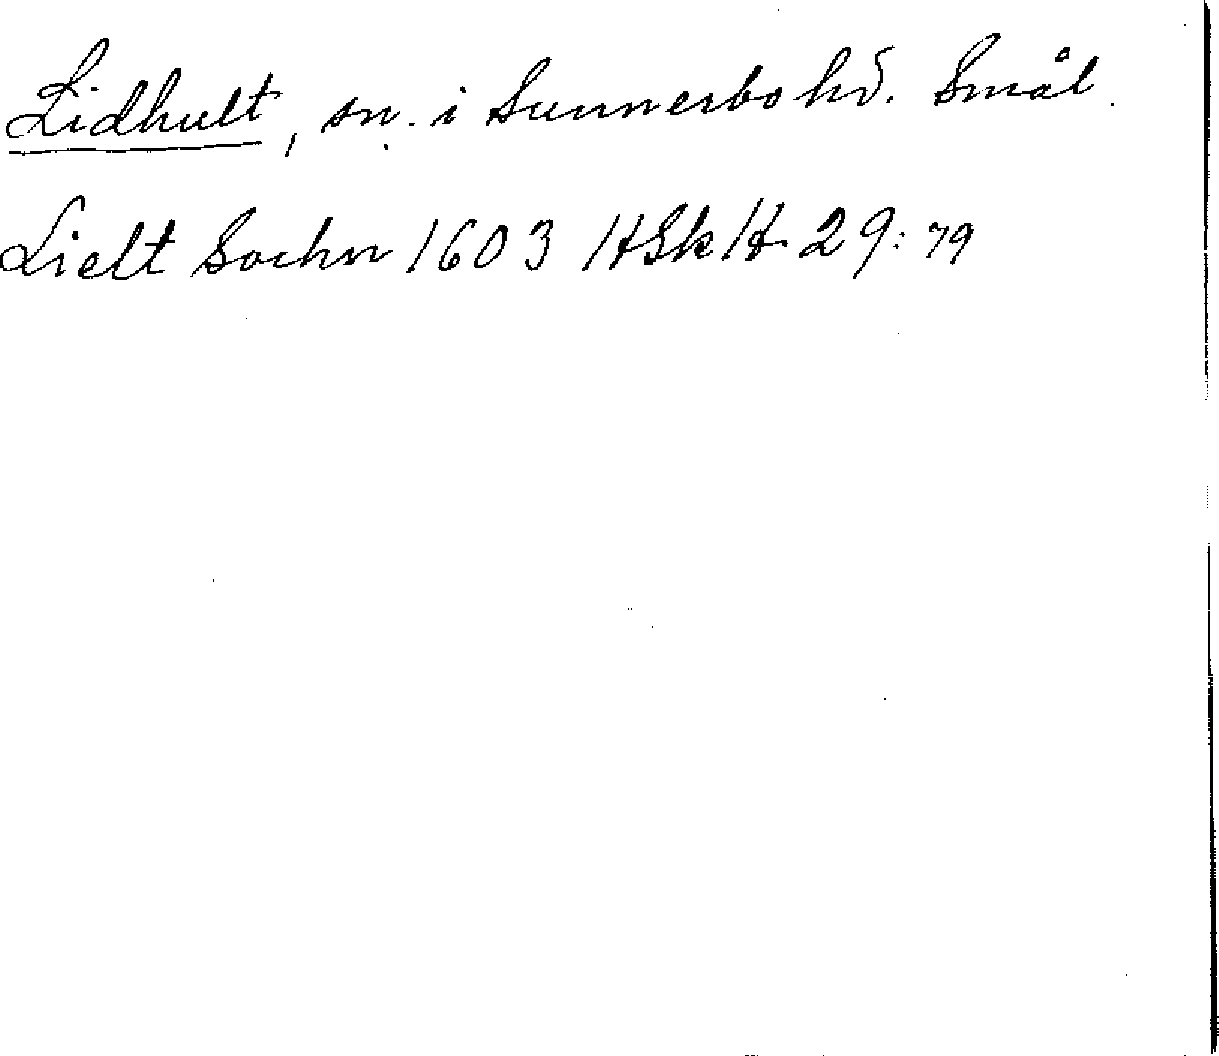 Lidhult, sn. i Sunnerbo hd. Smål.
Lielt Sochn 1603 HSkH 29:79